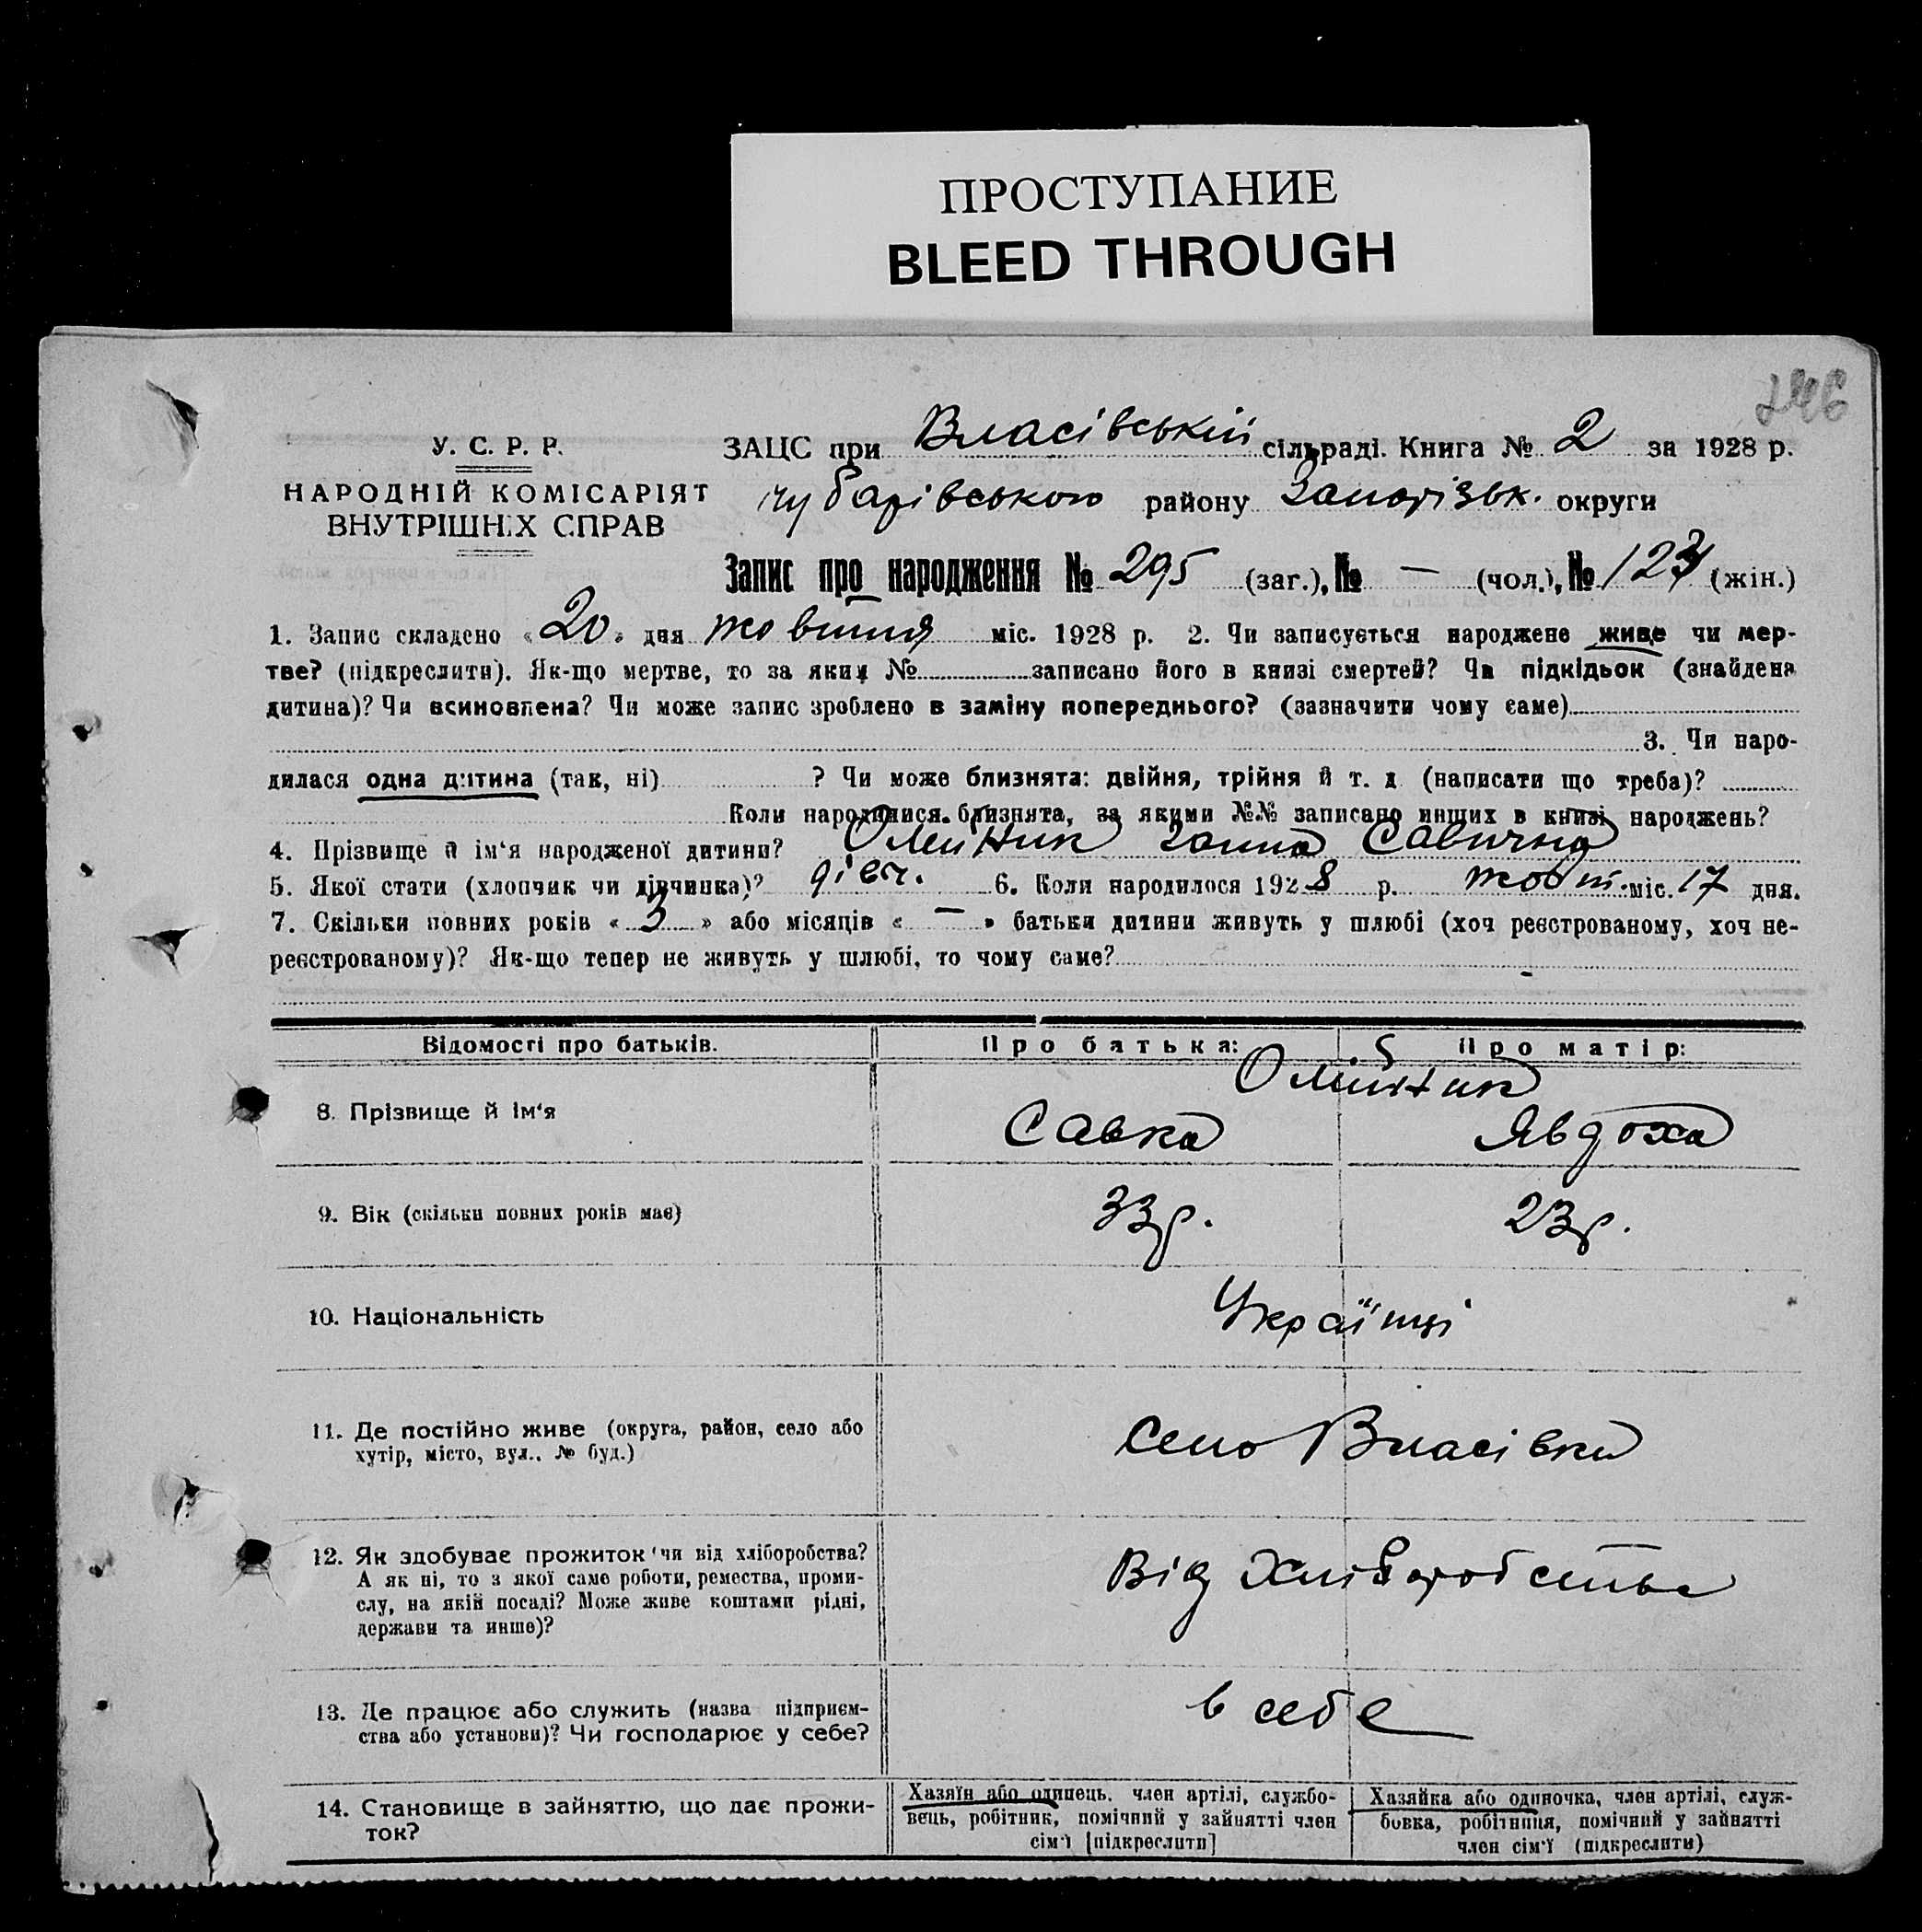 ПРОСТУПАНИЕ
BLEED THROUGH
246
У. С. Р. Р.
НАРОДНІЙ КОМІСАРІЯТ
ВНУТРІШНІХ СПРАВ
ЗАЦС при Власівській сільраді. Книга № 2 за 1928 р.
Чубарівського району Запорізьк. округи
Запис про народження № 295 (заг.), № — (чол.), № 123 (жін.)
1. Запис складено « 20 » дня жовтня міс. 1928 р. 2. Чи записується народжене живе чи мер-
тве? (підкреслити). Як-що мертве, то за яким № записано його в книзі смертей? Чи підкідьок (знайдена
дитина)? Чи всиновлена? Чи може запис зроблено в заміну попереднього? (зазначити чому саме)
3. Чи наро-
дилася одна дитина (так, ні) ? Чи може близнята: двійня, трійня й т. д (написати що треба)?
Коли народилися близнята, за якими №№ записано инших в книзі народжень?
4. Прізвище й ім‘я народженої дитини? Олійник Ганна Савична
5. Якої стати (хлопчик чи дівчинка)? дівч. 6. Коли народилося 1928 р. жовт. міс. 17 дня.
7. Скільки повних років « 3 » або місяців « — » батьки дитини живуть у шлюбі (хоч реєстрованому, хоч не-
реєстрованому)? Як-що тепер не живуть у шлюбі, то чому саме? -
Відомості про батьків. Про батька: Про матір:
Олійник
8. Прізвище й ім‘я Савка Явдоха
9. Вік (скільки повних років має) 33 р. 23 р.
10. Національність Українці
11. Де постійно живе (округа, район, село або
хутір, місто, вул., № буд.)
Село Власівка
12. Як здобуває прожиток чи від хліборобства?
А як ні, то з якої саме роботи, ремества, проми-
слу, на якій посаді? Може живе коштами рідні,
держави та инше)?
Від Хліборобства
13. Де працює або служить (назва підприєм-
ства або установи)? Чи господарює у себе?
в себе
14. Становище в зайняттю, що дає прожи-
ток?
Хазяїн або одинець, член артілі, службо-
вець, робітник, помічний у зайнятті член
сім‘ї [підкреслити]
Хазяйка або одиночка, член артілі, служ-
бовка, робітниця, помічний у зайнятті
член сім‘ї (підкреслити)